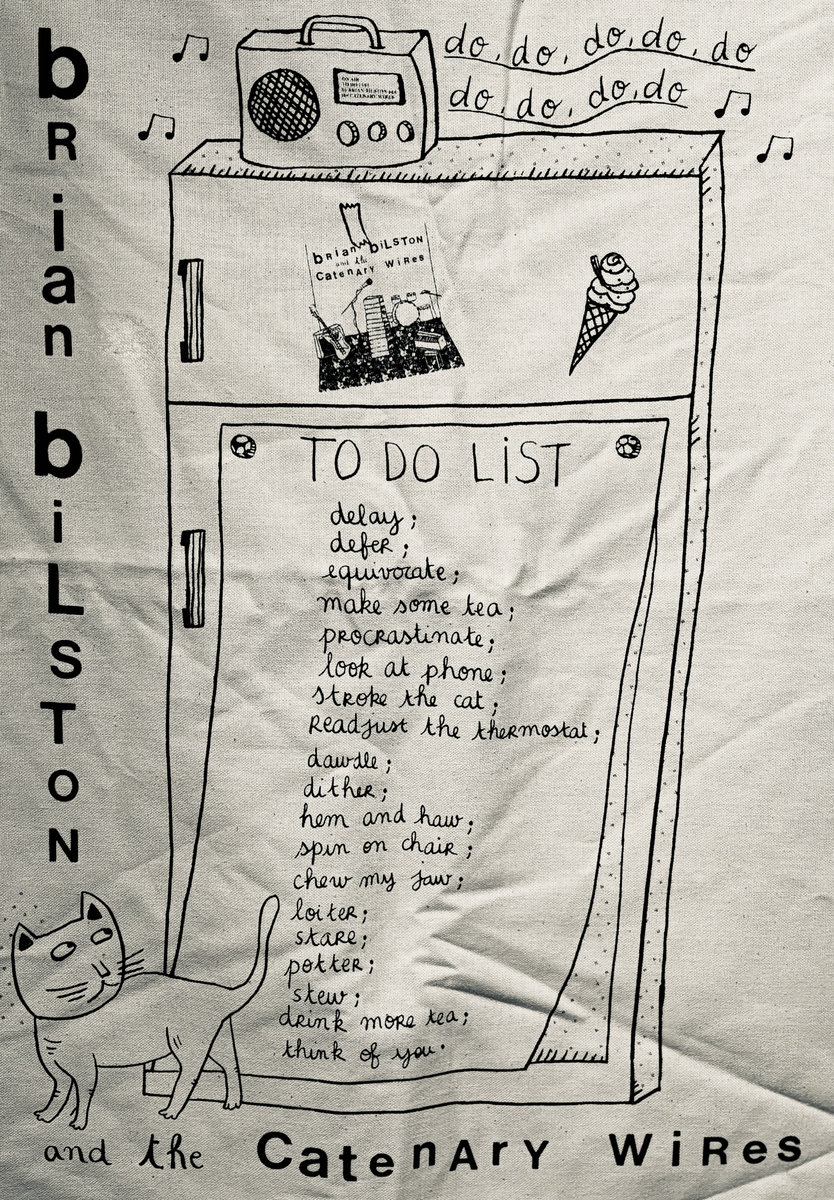 brian
bilston
do, do, do, do, do
do, do, do, do
ON AIR
TO DO LIST
by BRIAN BILSTON and
the CATENARY WIRES
brian biLSTON
and the
CatenAry WiRes
TO DO LiST
delay;
defer;
equivocate;
make some tea;
procrastinate;
look at phone;
stroke the cat;
Readjust the thermostat;
dawdle;
dither;
hem and haw;
spin on chair;
chew my jaw;
loiter;
stare;
potter;
stew;
drink more tea;
think of you.
and the CatenArY WiRes